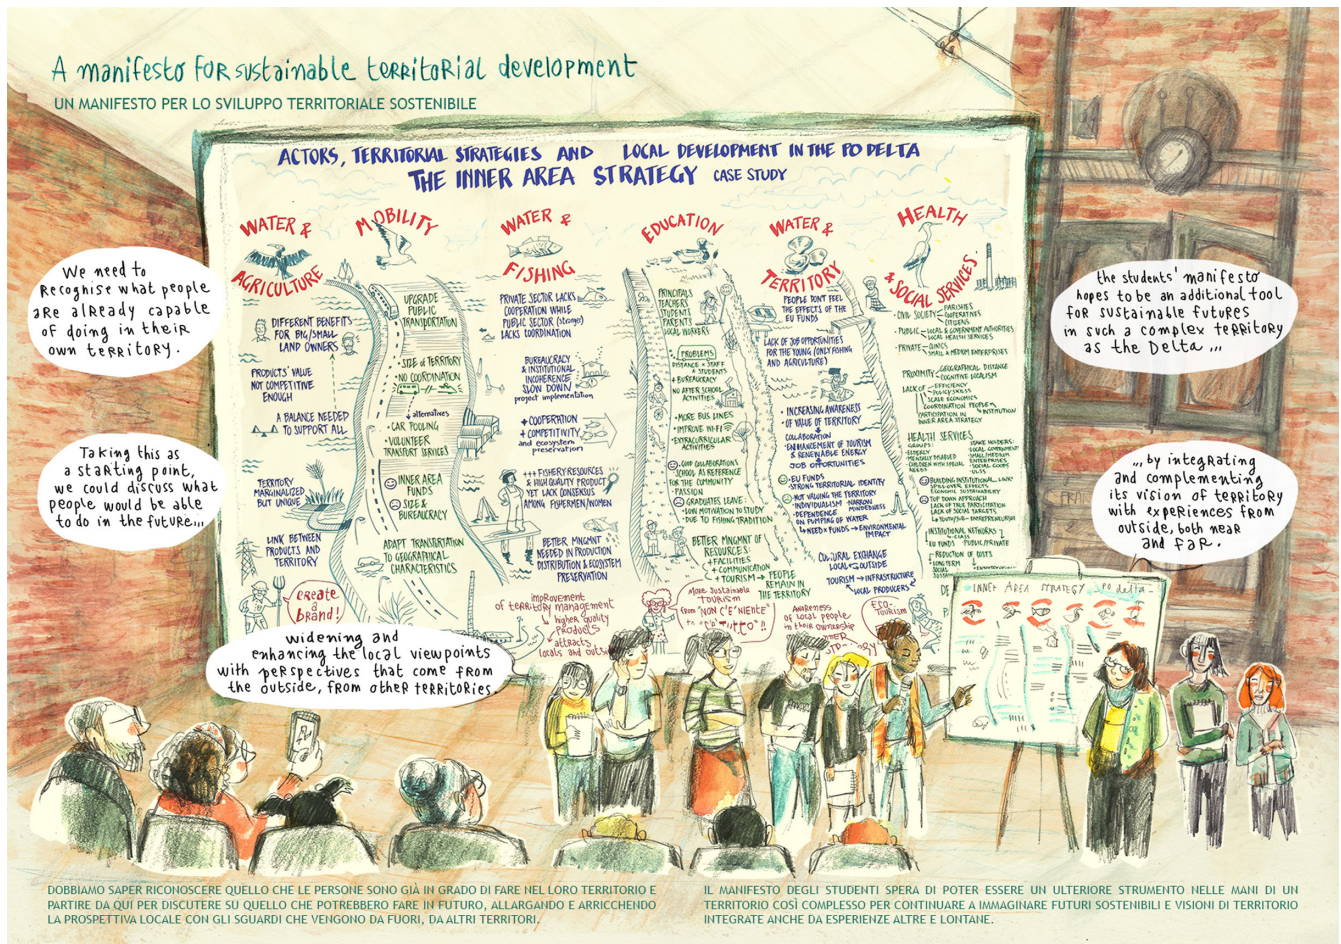 A manifesto for sustainable territorial development
UN MANIFESTO PER LO SVILUPPO TERRITORIALE SOSTENIBILE
ACTORS, TERRITORIAL STRATEGIES AND LOCAL DEVELOPMENT IN THE PO DELTA
THE INNER AREA STRATEGY CASE STUDY
We need to
Recognise what people
are already capable
of doing in their
own territory.
Taking this as
a starting point,
we could discuss what
people would be able
to do in the future...
widening and
enhancing the local viewpoints
with perspectives that come from
the outside, from other territories.
WATER &
AGRICULTURE
DIFFERENT BENEFITS
FOR BIG/SMALL
LAND OWNERS
PRODUCTS' VALUE
NOT COMPETITIVE
ENOUGH
A BALANCE NEEDED
TO SUPPORT ALL
TERRITORY
MARGINALIZED
BUT UNIQUE
LINK BETWEEN
PRODUCTS AND
TERRITORY
create
a
brand!
MOBILITY
UPGRADE
PUBLIC
TRANSPORTATION
SIZE of TERRITORY
NO COORDINATION
alternatives
CAR POOLING
VOLUNTEER
TRANSPORT SERVICES
INNER AREA
FUNDS
SIZE &
BUREAUCRACY
ADAPT TRANSPORTATION
TO GEOGRAPHICAL
CHARACTERISTICS
WATER &
FISHING
PRIVATE SECTOR LACKS
COOPERATION WHILE
PUBLIC SECTOR (stronger)
LACKS COORDINATION
BUREAUCRACY
& INSTITUTIONAL
INCOHERENCE
SLOW DOWN
project implementation
+ COOPERATION
+ COMPETITIVITY
and ecosystem
preservation
+++ FISHERY RESOURCES
& HIGH QUALITY PRODUCT
YET LACK CONSENSUS
AMONG FISHERMEN/WOMEN
BETTER MNGMNT
NEEDED IN PRODUCTION
DISTRIBUTION & ECOSYSTEM
PRESERVATION
improvement
of territory management
higher quality
products
attracts
locals and
EDUCATION
PRINCIPALS
TEACHERS
STUDENTS
PARENTS
LOCAL WORKERS
PROBLEMS
DISTANCE x STAFF
& STUDENTS
+ BUREAUCRACY
NO AFTER SCHOOL
ACTIVITIES
MORE BUS LINES
IMPROVE WI-FI
EXTRACURRICULAR
ACTIVITIES
GOOD COLLABORATIONS
SCHOOL AS REFERENCE
FOR THE COMMUNITY
PASSION
GRADUATES LEAVE:
LOW MOTIVATION TO STUDY
DUE TO FISHING TRADITION
BETTER MNGMNT OF
RESOURCES:
+ FACILITIES
+ COMMUNICATION
+ TOURISM → PEOPLE
REMAIN IN
THE TERRITORY
More sustainable
tourism
from "NON C'È NIENTE"
TUTTO"!!
WATER &
TERRITORY
PEOPLE DON'T FEEL
THE EFFECTS OF THE
EU FUNDS
LACK OF JOB OPPORTUNITIES
FOR THE YOUNG (ONLY FISHING
AND AGRICULTURE)
INCREASING AWARENESS
OF VALUE OF TERRITORY
COLLABORATION
ENHANCEMENT OF TOURISM
& RENEWABLE ENERGY
JOB OPPORTUNITIES
EU FUNDS
STRONG TERRITORIAL IDENTITY
NOT VALUING THE TERRITORY
INDIVIDUALISM NARROW
MINDEDNESS
DEPENDENCE
ON PUMPING OF WATER
NEED x FUNDS → ENVIRONMENTAL
IMPACT
CULTURAL EXCHANGE
LOCAL OUTSIDE
TOURISM → INFRASTRUCTURE
LOCAL PRODUCERS
Awareness
of local people
in their ownership
ECO-
TOURISM
HEALTH
& SOCIAL SERVICES
CIVIL SOCIETY PARISHES
COOPERATIVES
CITIZENS
PUBLIC LOCAL & GOVERNMENT AUTHORITIES
LOCAL HEALTH SERVICES
PRIVATE CLINICS
SMALL & MEDIUM ENTERPRISES
PROXIMITY GEOGRAPHICAL DISTANCE
COGNITIVE LOCALISM
LACK OF EFFICIENCY
SCALE ECONOMICS
COORDINATION PEOPLE
INSTITUTION
PARTICIPATION IN
INNER AREA STRATEGY
HEALTH SERVICES
GROUPS:
ELDERLY
MENTALLY DISABLED
CHILDREN WITH SPECIAL
NEEDS
STAKE HOLDERS:
LOCAL GOVERNMENT
SMALL/MEDIUM
ENTERPRISES
SOCIAL COOPS
ULSS
BUILDING INSTITUTIONAL LINKS
SPILL-OVER EFFECTS
ECONOMIC SUSTAINABILITY
TOP DOWN APPROACH
LACK OF TRUE PARTICIPATION
LACK OF SOCIAL TARGETS
INSTITUTIONAL NETWORKS
EU FUNDS PUBLIC/PRIVATE
REDUCTION OF COSTS
LONG TERM
SOCIAL
the students' manifesto
hopes to be an additional tool
for sustainable futures
in such a complex territory
as the Delta ...
... by integrating
and complementing
its vision of territory
with experiences from
outside, both near
and far.
INNER AREA STRATEGY PO delta
DOBBIAMO SAPER RICONOSCERE QUELLO CHE LE PERSONE SONO GIÀ IN GRADO DI FARE NEL LORO TERRITORIO E
PARTIRE DA QUI PER DISCUTERE SU QUELLO CHE POTREBBERO FARE IN FUTURO, ALLARGANDO E ARRICCHENDO
LA PROSPETTIVA LOCALE CON GLI SGUARDI CHE VENGONO DA FUORI, DA ALTRI TERRITORI.
IL MANIFESTO DEGLI STUDENTI SPERA DI POTER ESSERE UN ULTERIORE STRUMENTO NELLE MANI DI UN
TERRITORIO COSÌ COMPLESSO PER CONTINUARE A IMMAGINARE FUTURI SOSTENIBILI E VISIONI DI TERRITORIO
INTEGRATE ANCHE DA ESPERIENZE ALTRE E LONTANE.